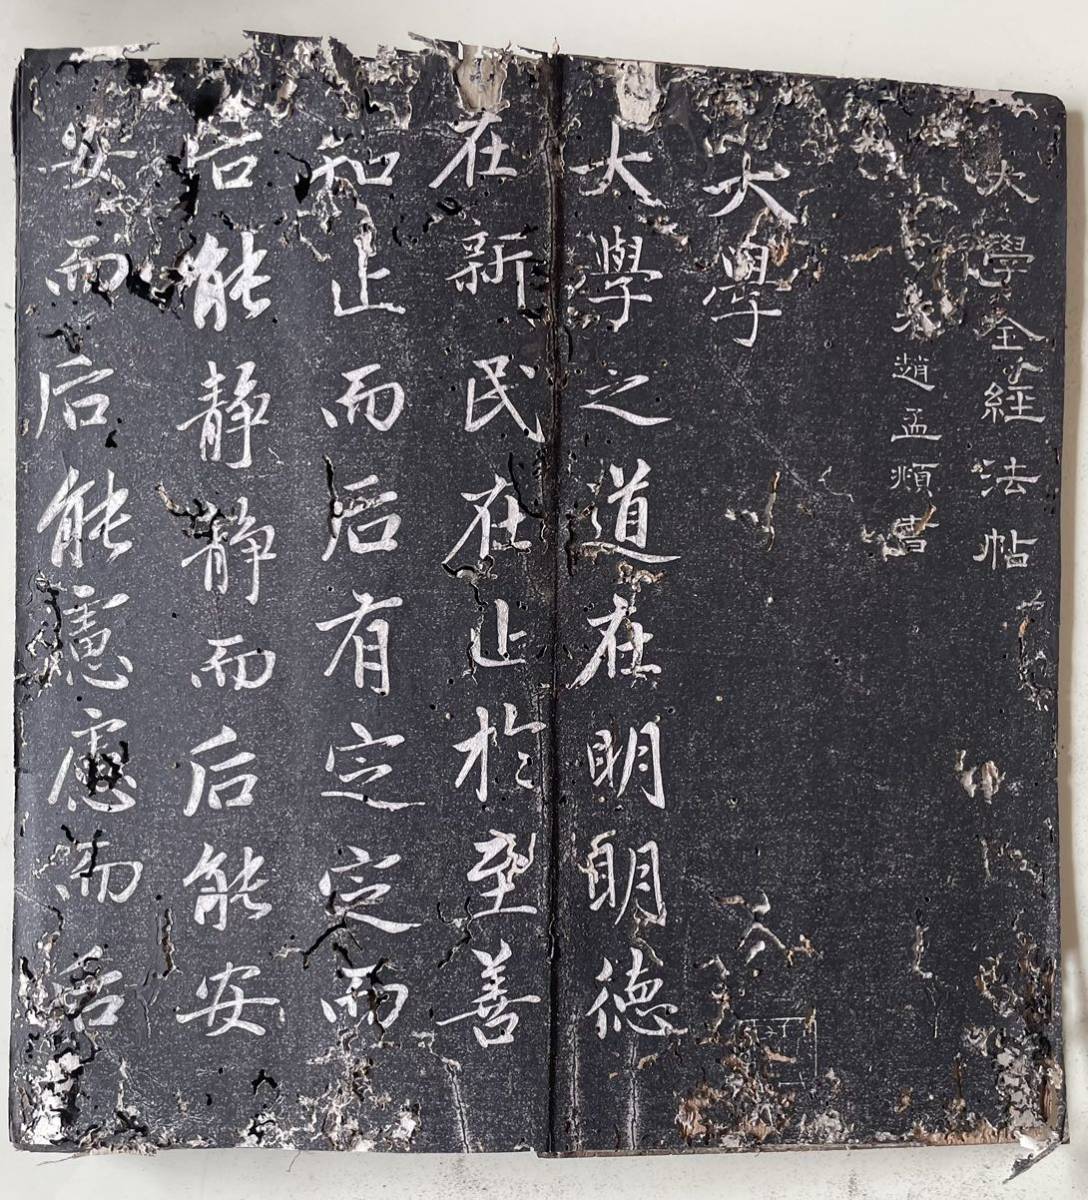 大學全經法帖
趙孟頫書
大學
大學之道在明明德
在新民在止於至善
知止而后有定定而
后能静静而后能安
安而后能慮慮而后